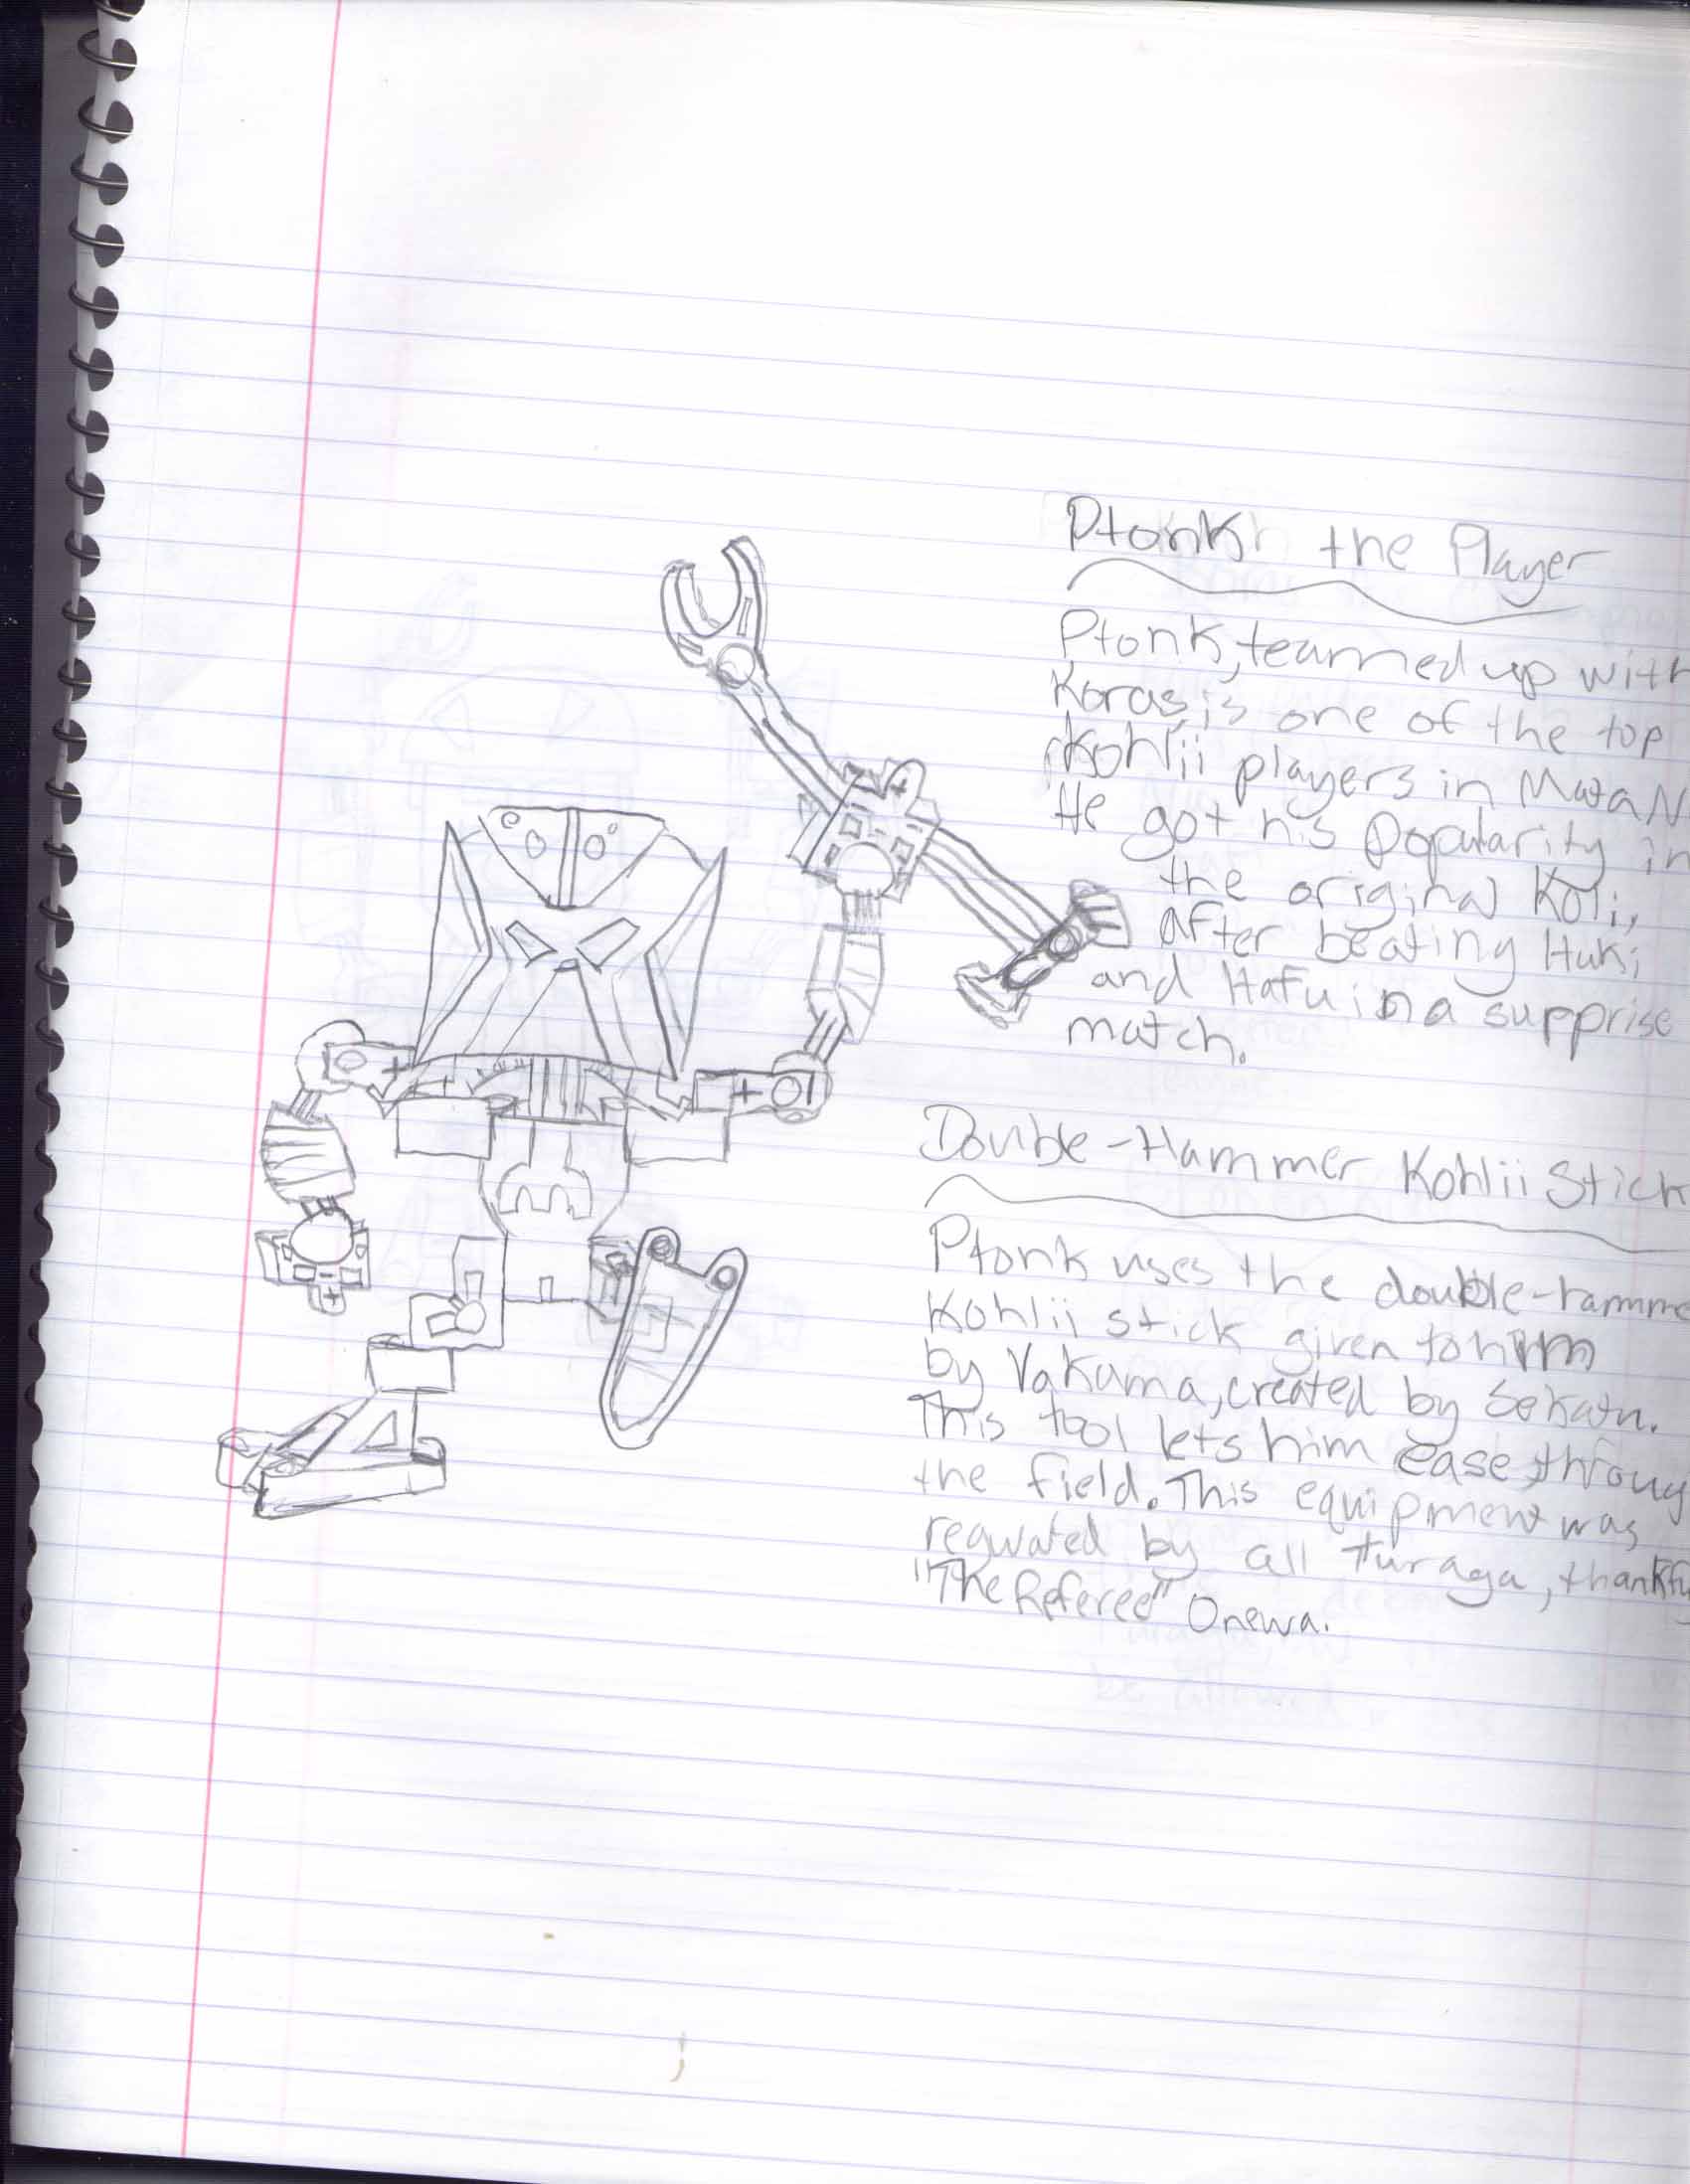 Ptonk the Player
Ptonk, teamed up with
Koras, is one of the top
Kohlii players in Mata N
He got his popularity in
the original Koli,
after beating Huki
and Hafu in a supprise
match.
Double-Hammer Kohlii Stick
Ptonk uses the double-hamme
Kohlii stick given to him
by Vakama, created by Sekatu.
This tool lets him ease throug
the field. This equipment was
regulated by all Turaga, thankfu
"The Referee" Onewa.